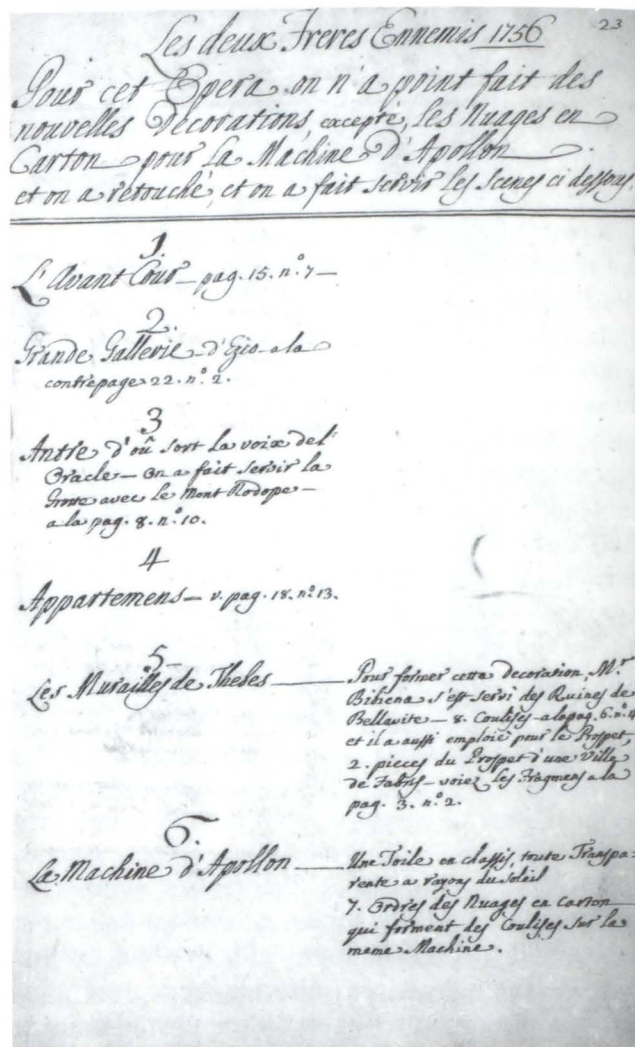 23
Les deux Freres Ennemis 1756
Pour cet Opera on n'a point fait des
nouvelles Decorations, excepté, les Nuages en
Carton pour La Machine d'Apollon.
et on a retouché et on a fait servir les Scenes ci dessous.
1.
L'Avant Cour – pag. 15. n.º 7 –
2.
Grande Gallerie d'Ezio – a la
contrepage 22. n.º 2.
3
Antre d'oû sort la voix del'
Oracle – On a fait servir la
Grotte avec le Mont Rodope –
a la pag. 8. n.º 10.
4
Appartemens – v. pag. 18. n.º 13.
5
Les Murailles de Thebes –
Pour former cette decoration, M.r
Bibiena s'est servi des Ruines de
Bellavite – 8. Coulises – a la pag. 6. n.º 4
et il a aussi emploié pour le Prospet,
2. pieces du Prospet d'une Ville
de Fabris – voiez les Fragmens a la
pag. 3. n.º 2.
6.
La Machine d'Apollon –
Une Toile en chassis, toute Transpa=
rente a rayons du Soleil
7. Ordres des Nuages en Carton
qui forment des Coulises sur la
meme Machine.